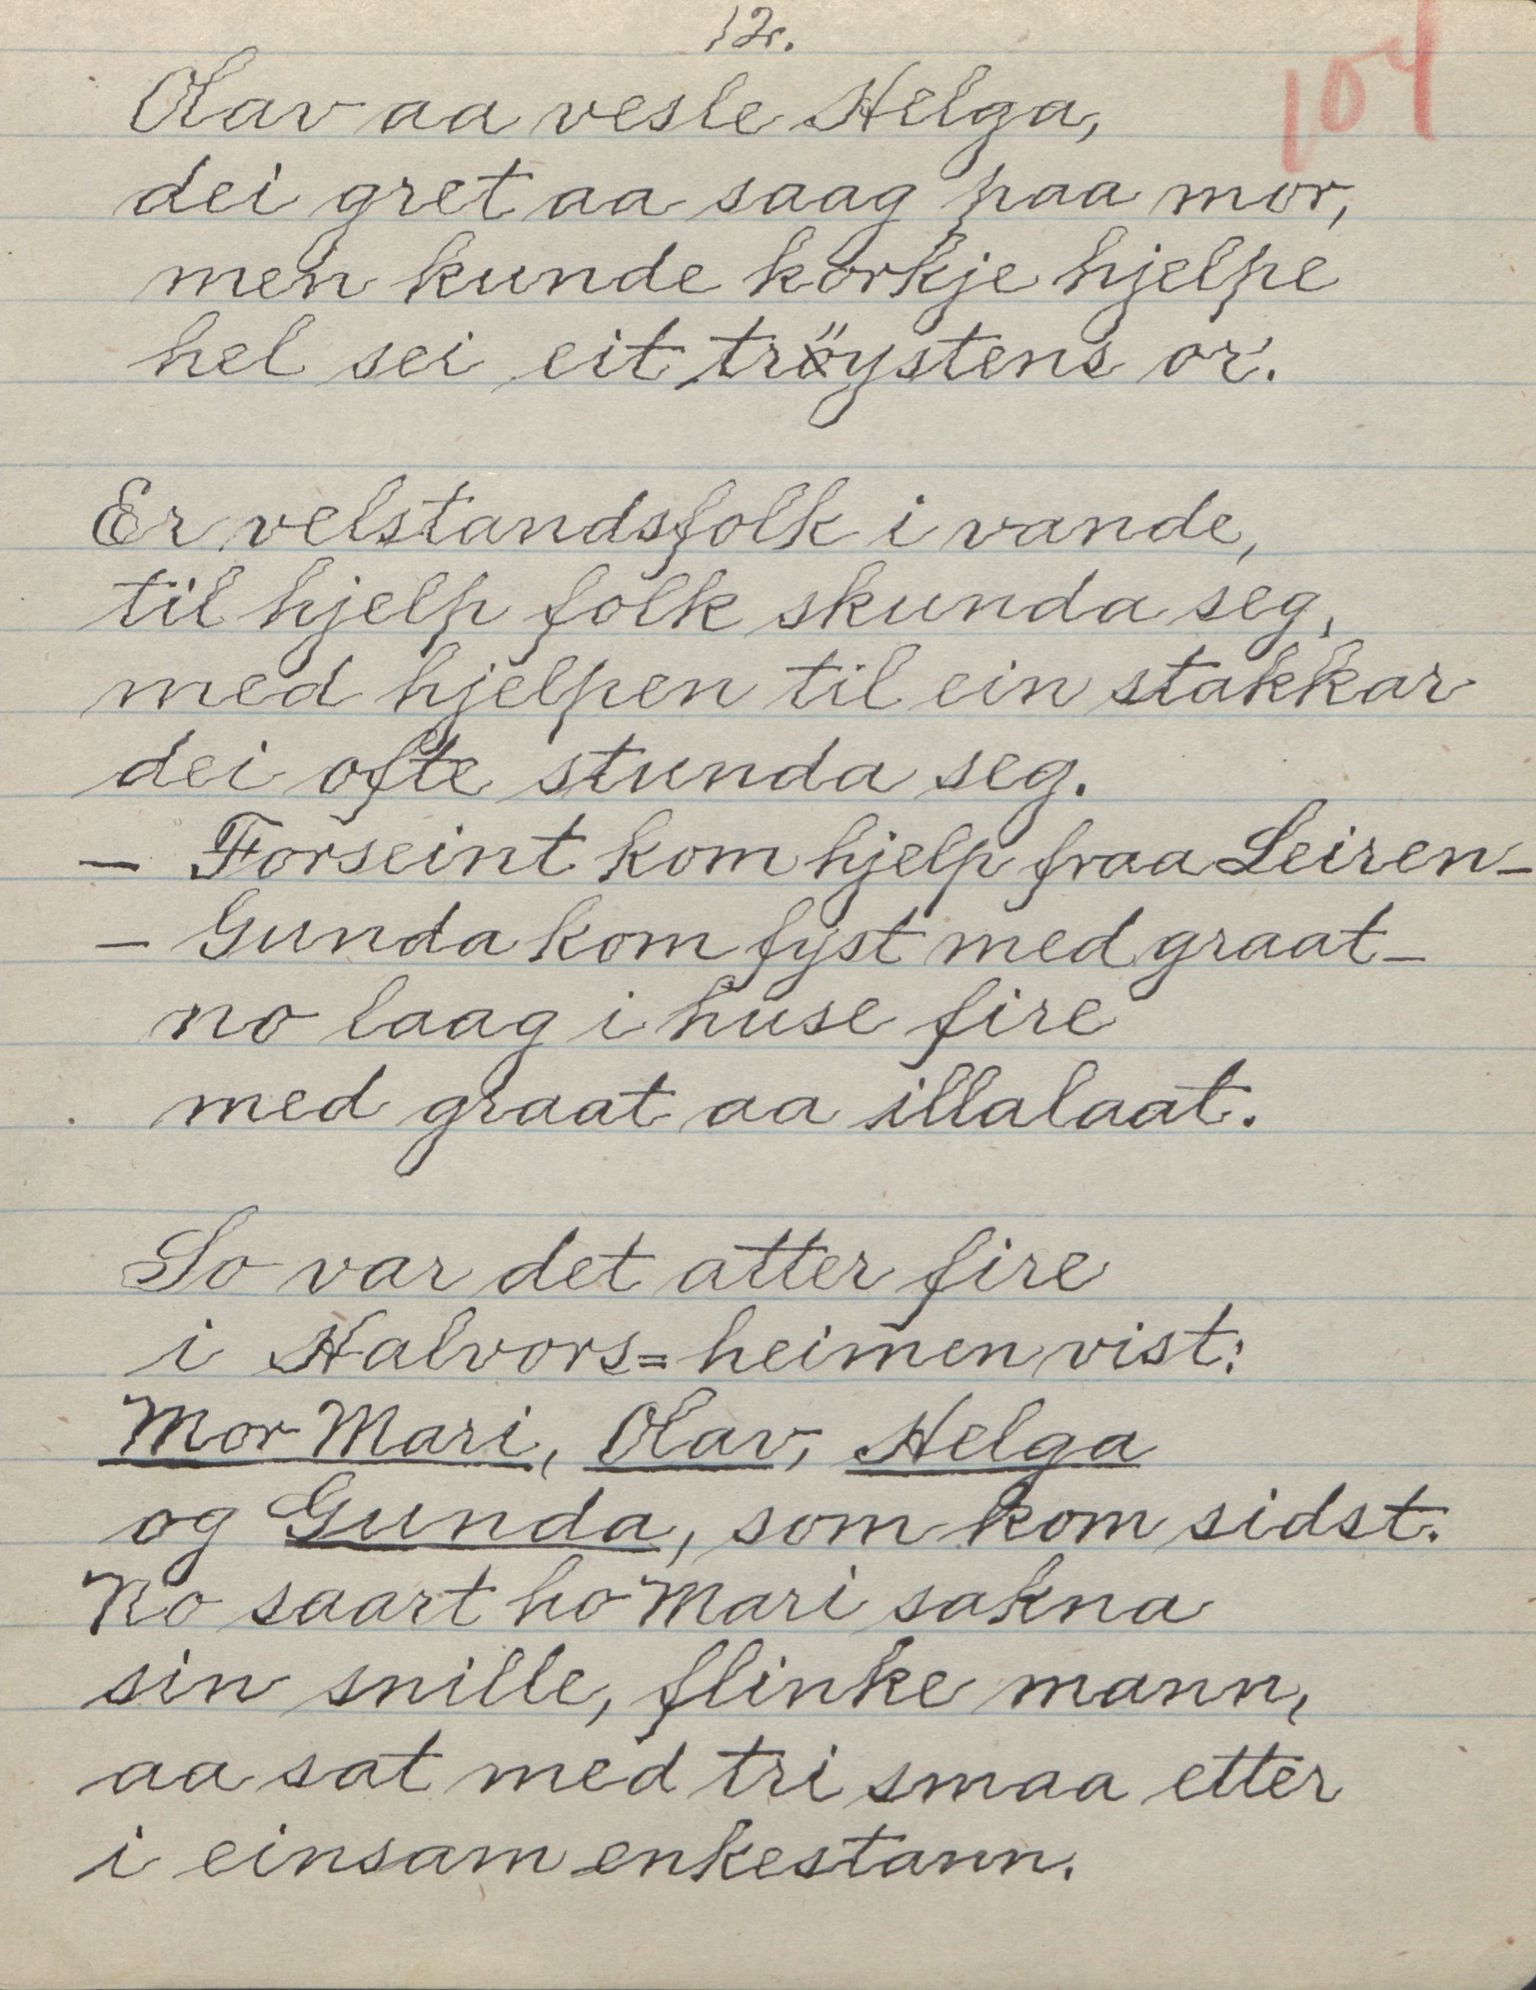 12.
104
Olav aa vesle Helga,
dei gret aa saag paa mor,
men kunde korkje hjelpe
hel sei eit tröystens or.
Er velstandsfolk i vande,
til hjelp folk skunda seg,
med hjelpen til ein stakkar
dei ofte stunda seg.
– Forseint kom hjelp fraa Leiren –
– Gunda kom fyst med graat –
no laag i huse fire
med graat aa illalaat.
So var det atter fire
i Halvors=heimen vist:
Mor Mari, Olav, Helga
og Gunda, som kom sidst.
No saart ho Mari sakna
sin snille, flinke mann,
aa sat med tri smaa etter
i einsam enkestann.